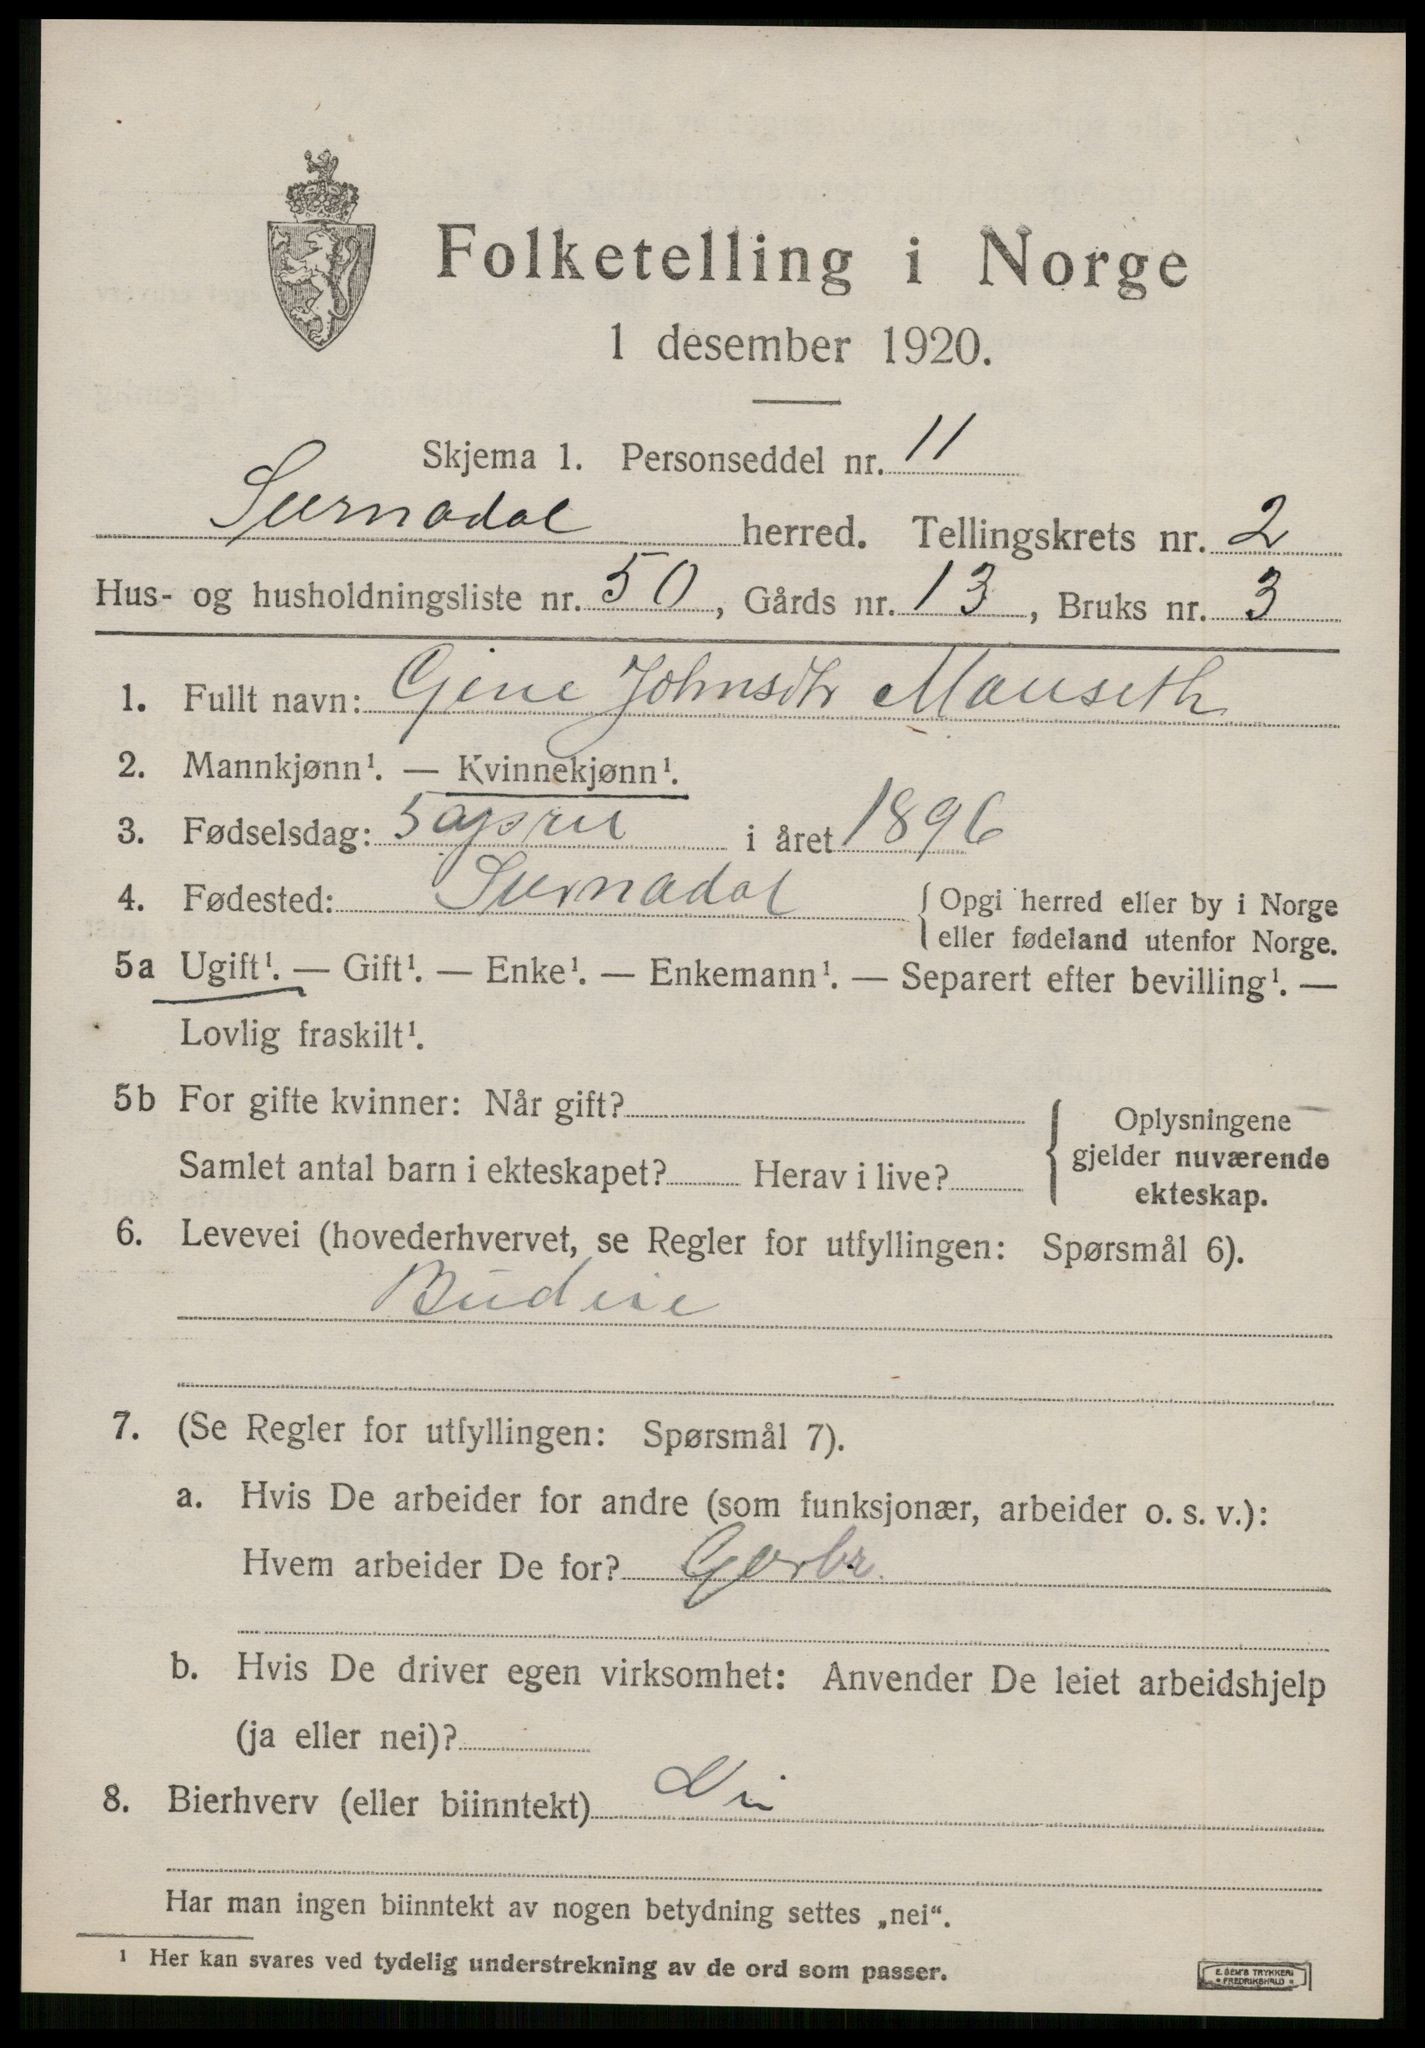 Folketelling i Norge
1 desember 1920.
Skjema 1. Personseddel nr. 11
Surnadal herred. Tellingskrets nr. 2
Hus- og husholdningsliste nr. 50, Gårds nr. 13, Bruks nr. 3
1. Fullt navn: Gjine Johnsdtr Mauseth
2. Mannkjønn¹. — Kvinnekjønn¹.
3. Fødselsdag: 5 april i året 1896
4. Fødested: Surnadal { Opgi herred eller by i Norge
eller fødeland utenfor Norge.
5a Ugift¹. — Gift¹. — Enke¹. — Enkemann¹. — Separert efter bevilling¹. —
Lovlig fraskilt¹.
5b For gifte kvinner: Når gift? { Oplysningene
gjelder nuværende
ekteskap.
Samlet antal barn i ekteskapet? Herav i live?
6. Levevei (hovederhvervet, se Regler for utfyllingen: Spørsmål 6).
Budeie
7. (Se Regler for utfyllingen: Spørsmål 7).
a. Hvis De arbeider for andre (som funksjonær, arbeider o. s. v.):
Hvem arbeider De for? Garbr.
b. Hvis De driver egen virksomhet: Anvender De leiet arbeidshjelp
(ja eller nei)?
8. Bierhverv (eller biinntekt) Nei
Har man ingen biinntekt av nogen betydning settes „nei“.
¹ Her kan svares ved tydelig understrekning av de ord som passer.
E. SEM'S TRYKKERI
FREDRIKSHALD